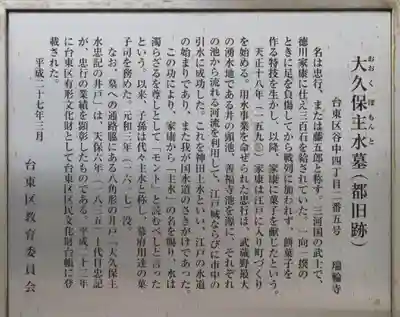 大久保主水墓（都旧跡）
おおくぼもんと
台東区谷中四丁目二番五号　瑞輪寺
名は忠行、または藤五郎と称す。三河国の武士で、
徳川家康に仕え三百石を給されていた。一向一揆の
ときに足を負傷してから戦列に加われず、餅菓子を
作る特技を生かし、以降、家康に菓子を献じたという。
天正十八年（一五九〇）家康は江戸に入り町づくり
を始める。用水事業を命ぜられた忠行は、武蔵野最大
の湧水地である井の頭池、善福寺池を源に、それぞれ
の池から流れる河流を利用して、江戸城ならびに市中の
引水に成功した。これを神田上水といい、江戸の水道
の始まりであり、また我が国水道のさきがけであった。
この功により、家康から「主水」の名を賜り、水は
濁らざるを尊しとして「モント」と読むべしと言った
という。以来、子孫は代々主水と称し、幕府用達の菓
子司を務めた。元和三年（一六一七）没。
なお、墓への通路脇にある八角形の井戸「大久保主
水忠記の井戸」は、天保六年（一八三五）十代目忠記
が、忠行の業績を顕彰したものである。平成二十二年
に台東区有形文化財として台東区区民文化財台帳に登
載された。
平成二十七年三月
台東区教育委員会